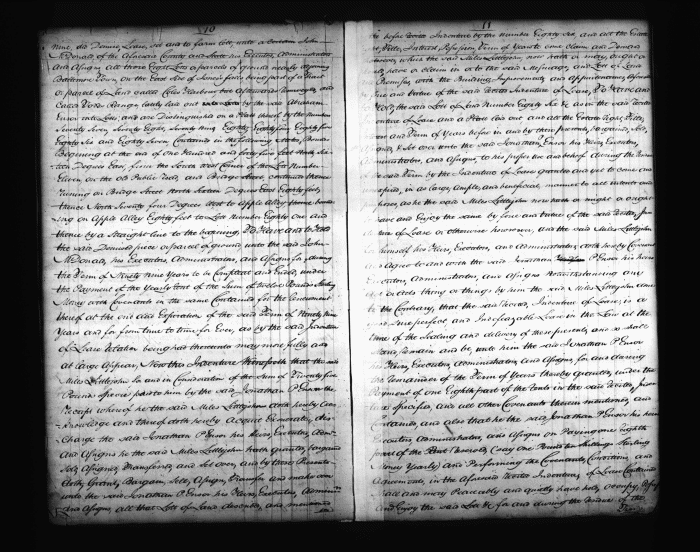 10
nine, did Demise, Lease, set and to farm lett, unto a certain John
McDonald of the aforesaid County and State his Executors, Administrators
and Assigns all those Eight Lots or parcels of ground near to adjoining
Baltimore Town, on the East side of Jones's falls being part of a Tract
or parcel of Land called Coles Harbour but afterwards
called Todd's Range, lately laid out into Lots by the said Abraham
Ensor into Lots, and are Distinguished on a Platt thereof by the Number
Seventy Seven, Seventy Eight, Seventy Nine, Eighty, Eighty four, Eighty five
Eighty Six and Eighty Seven, Contained in the following Metes
Beginning at the end of One Hundred and forty five feet North Six
teen Degrees East, from the South West Corner of the Lot Number
Eleven on the Public Road, and Bridge Street, continued thence
Running on Bridge Street North Sixteen Degrees East Eighty feet,
thence North Seventy four Degrees West to Apple Alley thence bound
ing on Apple Alley Eighty feet to Lot Number Eighty One and
thence by a straight line to the beginning, To Have and to Hold
the said Demised piece or parcel of ground unto the said John
McDonald, his Executors, Administrators, and Assigns for & during
the Term of Ninety Nine Years to be Compleat and Ended, under
the Payment of the Yearly Rent of the Sum of twelve Pounds Sterling
Money with Covenants in the same Contained for the Continuance
thereof at the end and Expiration of the said Term of Ninety Nine
Years and so from time to time for Ever, as by the said Indenture
of Lease Relation being had thereunto may more fully and
at large Appear, Now this Indenture Witnesseth that the said
Miles Lottlejohn for and in Consideration of the Sum of Twenty five
Pounds Specie paid to him by the said Jonathan P Ensor the
Receipt whereof he the said Miles Lottlejohn doth hereby Ac
knowledge and thereof doth hereby Acquit Exonerate, dis
charge the said Jonathan P Ensor his Heirs, Executors, Admrs
and Assigns he the said Miles Lottlejohn hath granted, bargained
Sold, Assigned, Transferred and Set over, and by these Presents
doth, Grant, Bargain, Sell, Assign, Transfer and make over
unto the said Jonathan P Ensor his Heirs, Executors, Adminis
and Assigns, all that Lot of Land described, and mentioned
11
the before recited Indenture by the Number Eighty Six, and all the Estate
Right, Title, Interest, Possession, Term of Years to come claim and Demand
whatsoever, which the said Miles Lottlejohn now hath or may, or ought of
Right, have or claim in or to the said Messuage, and Lot of Land
Premises, with the Building Improvements, and Appurtenances, by
force and Virtue of the said recited Indenture of Lease, To Have and to
Hold, the said Lott of Land Number Eighty Six &c as in the said recited
Indenture of Lease and a Platt laid out and all the Estate Right, Title,
Term and Term of Years before in and by these presents, bargained, Sold,
Assigned, & Set over unto the said Jonathan Ensor his Heirs, Executors,
Administrators, and Assigns, to his proper use and behoof during the Remain
der of said Term by the Indenture of Lease granted and yet to come and
unexpired, in as large, ample, and beneficial, manner to all intents and
purposes, as he the said Miles Lottlejohn now hath or might or ought
to have and Enjoy the same by force and Virtue of the said recited, Inden
ture of Lease or otherwise howsoever, and the said Miles Lottlejohn
for himself his Heirs, Executors, and Administrators, doth hereby Covenant
and Agree to and with the said Jonathan P Ensor his heirs
Executors, Administrators, and Assigns Notwithstanding any
Act or Acts thing or things by him the said Miles Lottlejohn done to
the Contrary, that the said recited, Indenture of Lease, is a
Good Sure perfect and Indefeazable Lease in the Law at the
time of the Sealing and delivery of these presents, and so shall
Stand, remain and be, unto him the said Jonathan P Ensor
his Heirs, Executors, Administrators, and Assigns for and during
the Remainder of the Term of Years thereby granted, under the
Payment of One Eighth part of the Rents in the said recited, Inden
ture specified, and all other Covenants therein mentioned, and
Contained, and also that he the said Jonathan P Ensor his heirs
Executors, Administrators, and Assigns on Paying one Eighth
part of the Rent Reserved, Viz, One Pound ten Shillings Sterling
Money Yearly and Performing the Covenants, Conditions, and
Agreements, in the Aforesaid recited Indenture, of Lease Contained
Shall and may Peaceably and quietly have, hold, occupy, Possess
and Enjoy the said Lot &c for and during the residue of the